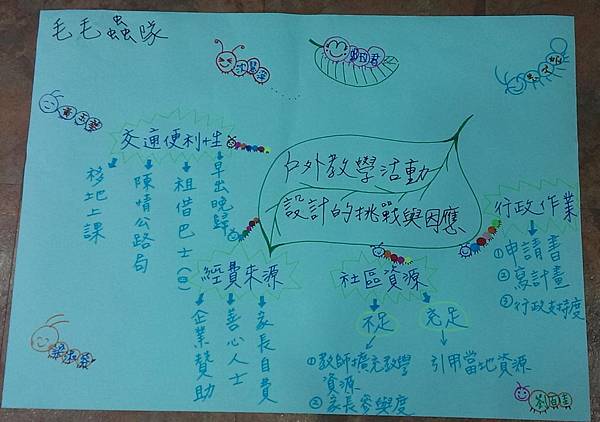 毛毛蟲隊
戶外教學活動
設計的挑戰與因應
交通便利性
早出晚歸
租借巴士($)
陳情公路局
移地上課
經費來源
家長自費
善心人士
企業贊助
社區資源
不足
①教師擴充教學
資源
②家長參與度
充足
引用當地資源
行政作業
①申請書
②寫計畫
③行政支持度